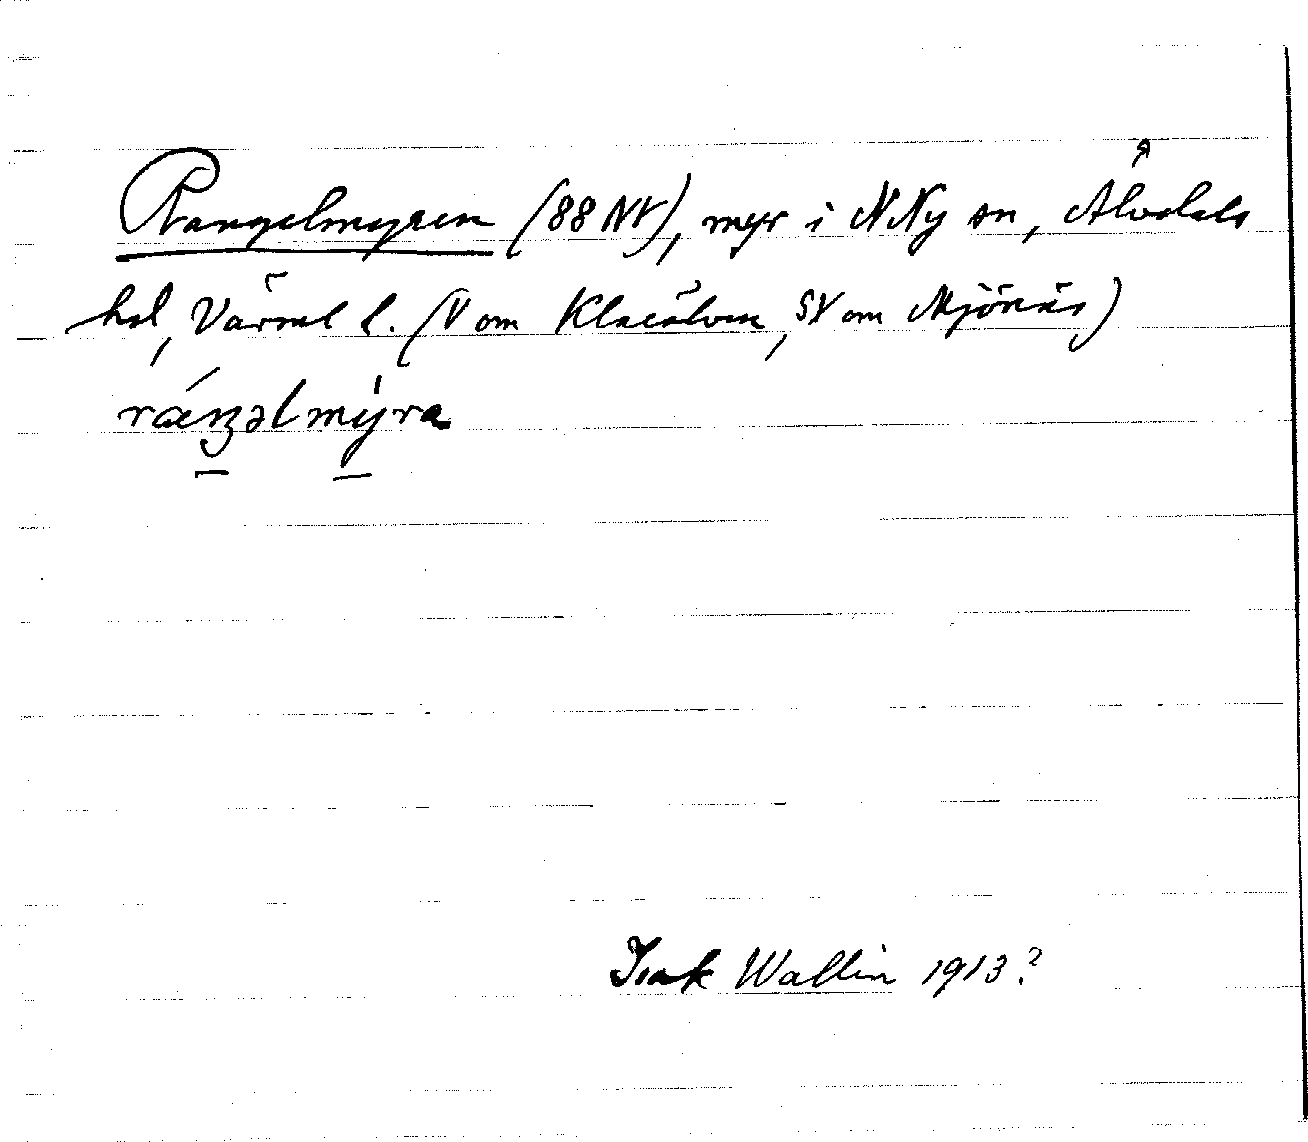 Rangelmyren (88 NV), myr i N Ny sn, Älvdals
hd, Värml l. (V om Klarälven, SV om Mjönäs)
ráŋəlmýra
Isak Wallin 1913?